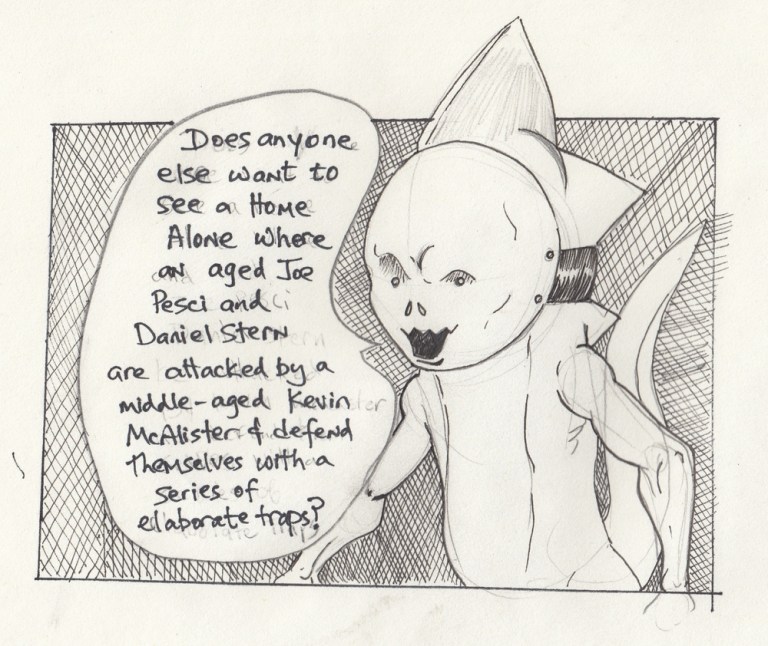 Does anyone
else want to
see a Home
Alone where
an aged Joe
Pesci and
Daniel Stern
are attacked by a
middle-aged Kevin
McAlister & defend
themselves with a
series of
elaborate traps?